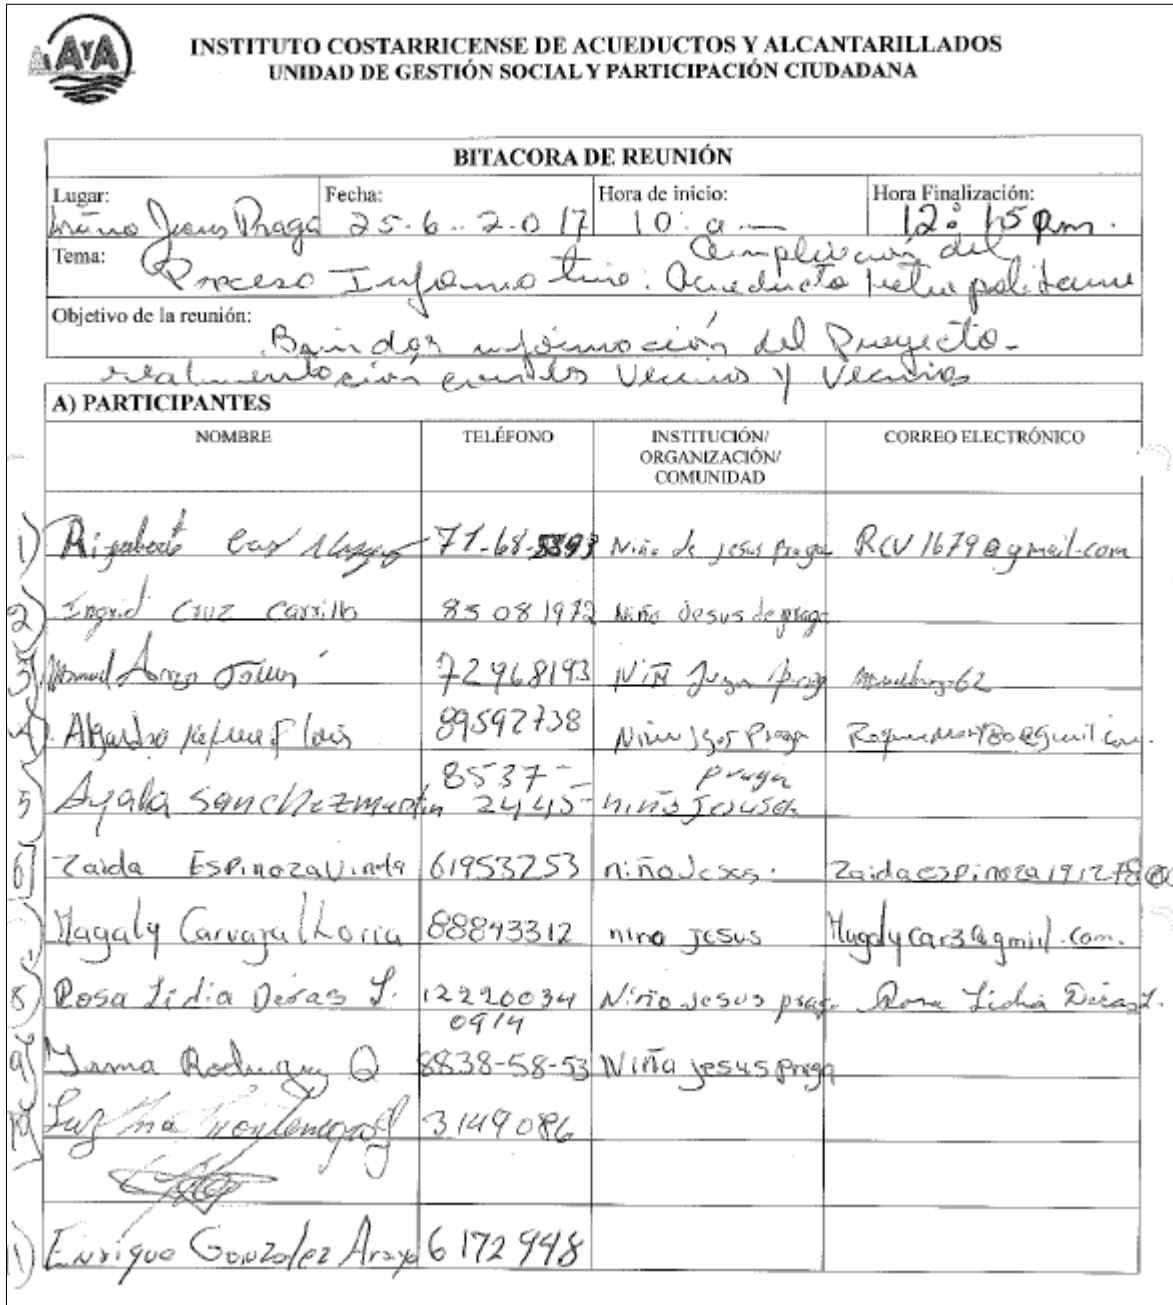 AyA
INSTITUTO COSTARRICENSE DE ACUEDUCTOS Y ALCANTARILLADOS
UNIDAD DE GESTIÓN SOCIAL Y PARTICIPACIÓN CIUDADANA
BITACORA DE REUNIÓN
Lugar: Jesus Praga Fecha: 25-6-2017 Hora de inicio: 10: a Hora Finalización: 12:15 pm.
Tema: Proceso Informativo: Ampliación del Acueducto Metropolitano
Objetivo de la reunión: Brindar información del Proyecto-
realimentación con los Vecinos y Vecinas
A) PARTICIPANTES
NOMBRE TELÉFONO INSTITUCIÓN/ ORGANIZACIÓN/ COMUNIDAD CORREO ELECTRÓNICO
1) Rigoberto 71-68- Niño de jesus praga RCV1679@gmail.com
2) Ingrid Cruz Carrillo 85081972 Niño Jesus de praga
3) Manuel 72968193 Niñ
4) 89592738 Niño Praga
5) Ayala Sanchez martin 8537-2445- niño Jesus de praga
6) Zaida Espinoza 61953253 niño Jesus.
Magaly Carvajal Loria 88843312 nino jesus
8) Rosa Lidia Deras L. 12220034 0914 Niño Jesus praga Rosa Lidia Deras L.
9) Q 8838-58-53 Niño jesus praga
10) Luz 3149086
11) Enrique Gonzalez Araya 6172948